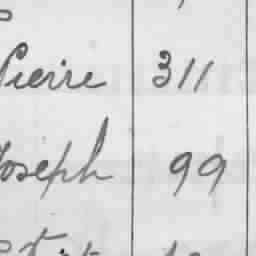 Pierre 311
Joseph 99